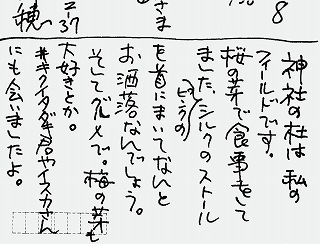 8
さま
穂
神社の杜は私の
フィールドです。
桜の芽で食事をして
ました。シルクのストール
ピンクの
を首にまいてなんと
お洒落なんでしょう。
そしてグルメで。梅の芽も
大好きとか。
キクイタダキ君やイスカさん
にも会いましたよ。